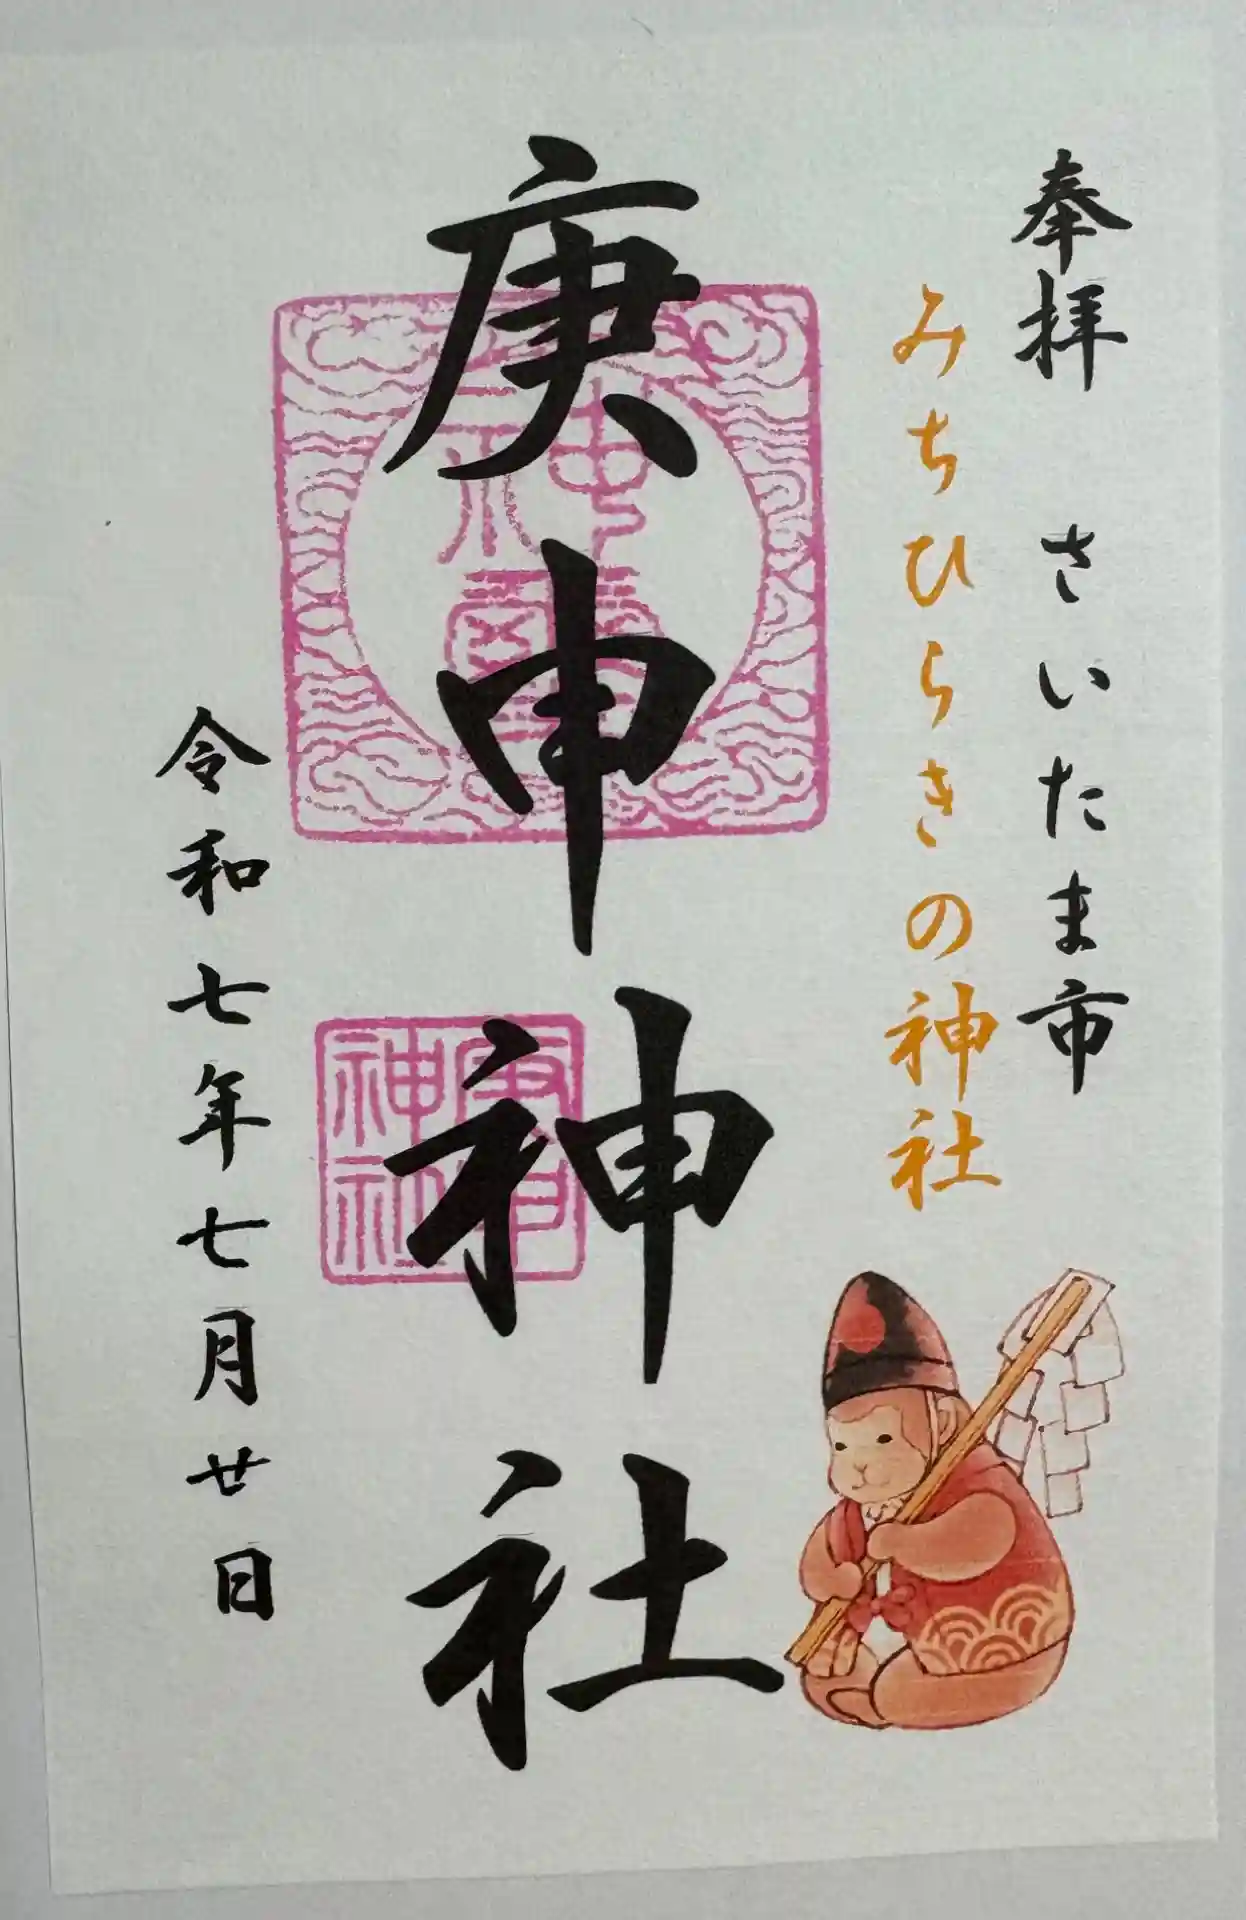 奉拝 さいたま市
みちひらきの神社
庚申神社
令和七年七月廿日
庚申
神社